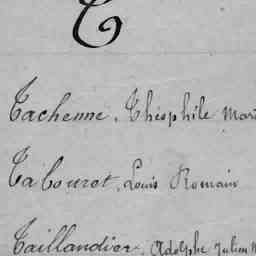 T
Tachenne, Théophile Mari
Tabouret, Louis Romain
Taillandier, Adolphe Julien